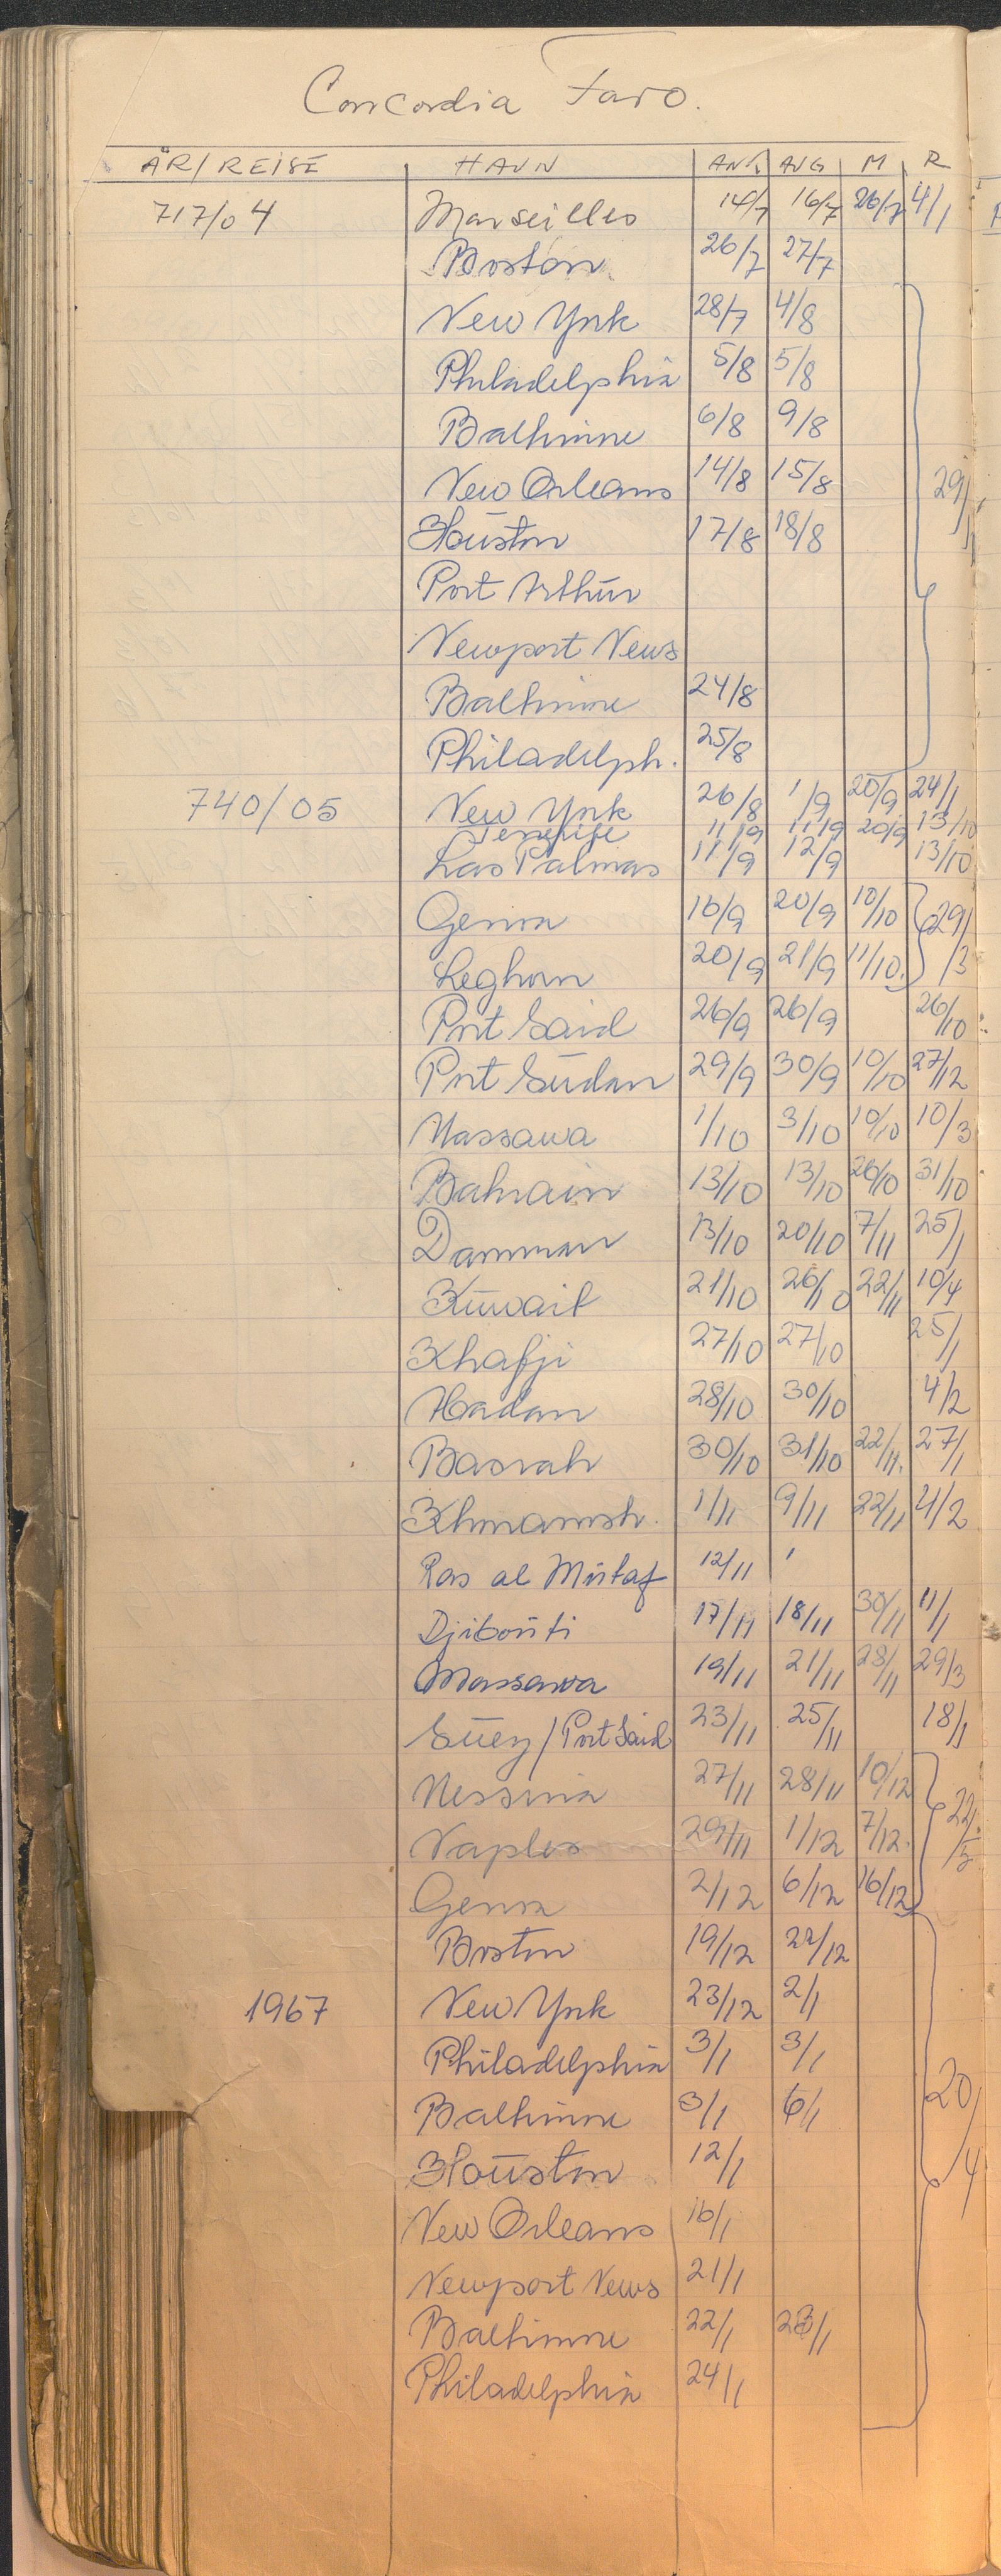 Concordia Faro.
ÅR/REISE HAVN ANK AVG M R
717/04 Marseilles 14/7 16/7 26/7 4/1
Boston 26/7 27/7
New York 28/7 4/8
Philadelphia 5/8 5/8
Balthimore 6/8 9/8
New Orleans 14/8 15/8 29/1
Houston 17/8 18/8
Port Arthur
Newport News
Balthimore 24/8
Philadelph. 25/8
740/05 New York 26/8 1/9 20/9 24/1
Tenerife 11/9 11/9 20/9 13/10
Las Palmas 11/9 12/9 13/10
Genoa 16/9 20/9 10/10 29/3
Leghorn 20/9 21/9 11/10.
Port Said 26/9 26/9 26/10
Port Sudan 29/9 30/9 10/10 27/12
Massawa 1/10 3/10 10/10 10/3
Bahrain 13/10 13/10 26/10 31/10
Damman 13/10 20/10 7/11 25/1
Kuwait 21/10 26/10 22/11 10/4
Khafji 27/10 27/10 25/1
Abadan 28/10 30/10 4/2
Basrah 30/10 31/10 22/11. 27/1
Khoramsh. 1/11 9/11 22/11 4/2
Ras al Mistaf 12/11
Djibouti 17/11 18/11 30/11 11/1
Massawa 19/11 21/11 28/11 29/3
Suez/Port Said 23/11 25/11 18/1
Messina 27/11 28/11 10/12
Naples 29/11 1/12 7/12. 22/5
Genoa 2/12 6/12 16/12
Boston 19/12 22/12
1967 New York 23/12 2/1
Philadelphia 3/1 3/1
Balthimore 3/1 6/1 20/4
Houston 12/1
New Orleans 16/1
Newport News 21/1
Balthimore 22/1 23/1
Philadelphia 24/1